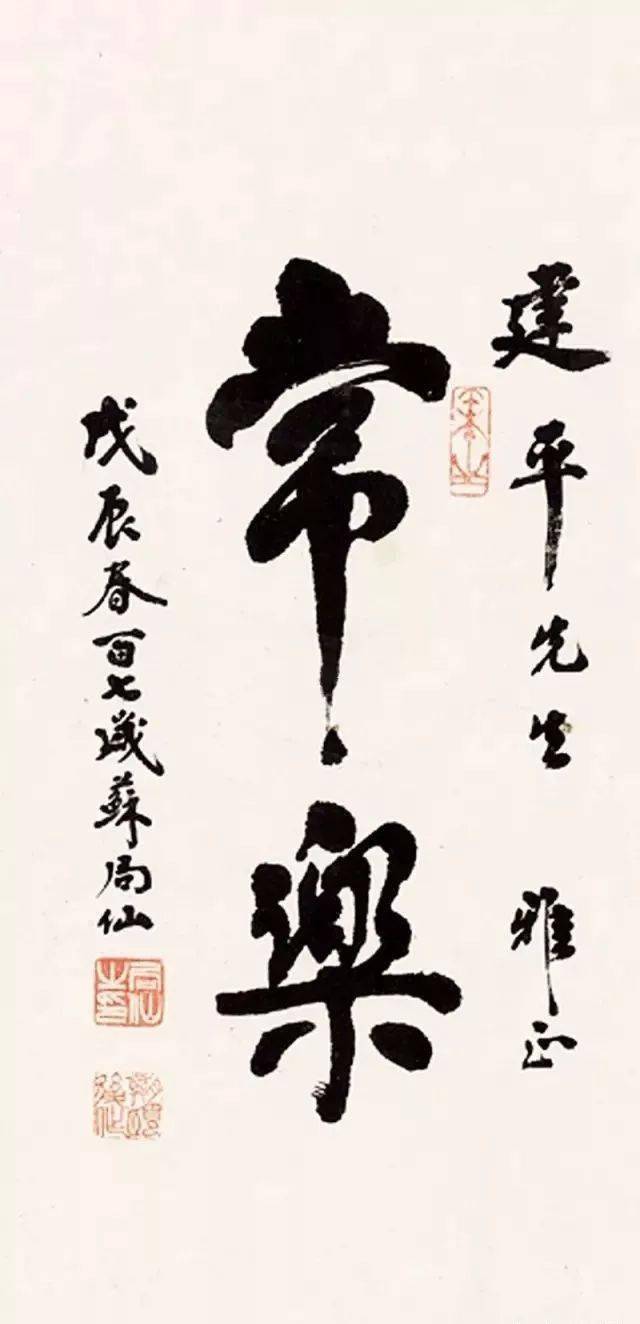 建平先生 雅正
常樂
戊辰春百七歲蘇局仙
局仙之印